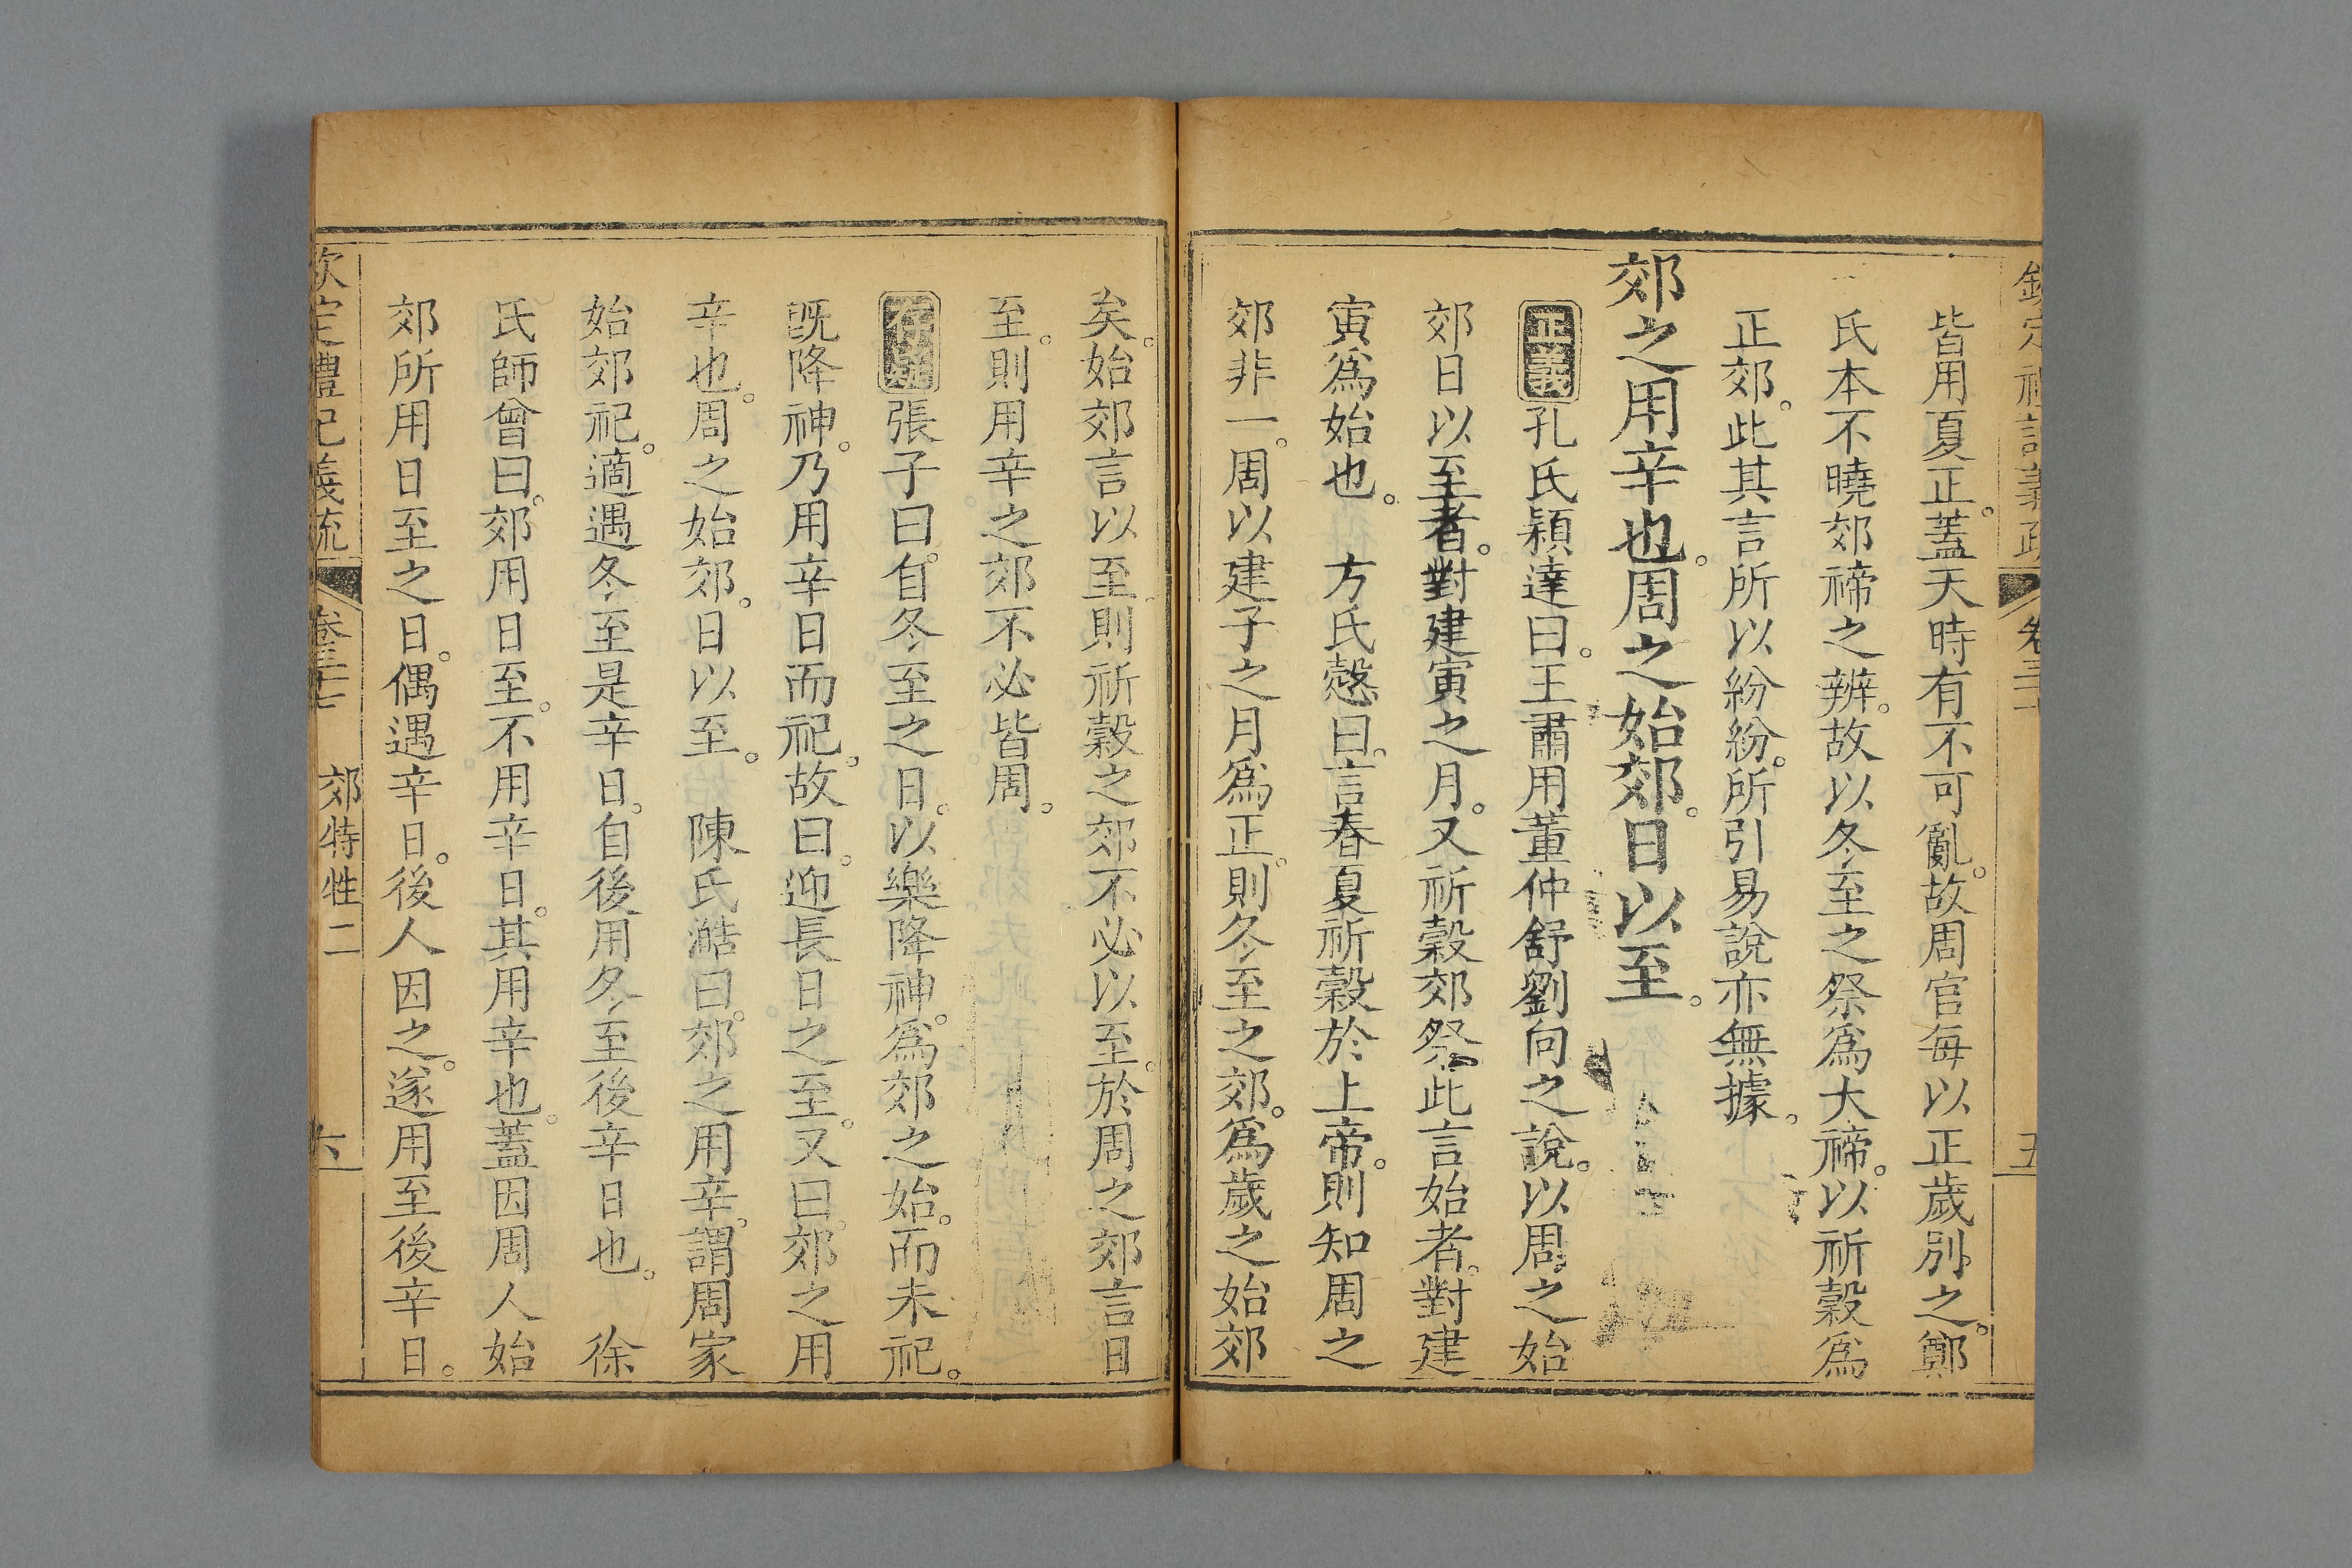 皆用夏正。蓋天時有不可亂。故周官每以正歲別之。鄭
氏本不曉郊禘之辨。故以冬至之祭爲大禘。以祈穀爲
正郊。此其言所以紛紛。所引易說亦無據。
郊之用辛也。周之始郊。日以至。
正義孔氏穎達曰。王肅用董仲舒劉向之說。以周之始
郊日以至者。對建寅之月。又祈穀郊祭。此言始者。對建
寅爲始也。 方氏慤曰。言春夏祈穀於上帝。則知周之
郊非一。周以建子之月爲正。則冬至之郊。爲歲之始郊
矣。始郊言以至。則祈穀之郊不必以至。於周之郊言日
至。則用辛之郊不必皆周。
存疑張子曰。自冬至之日。以樂降神。爲郊之始。而未祀。
既降神。乃用辛日而祀。故曰。迎長日之至。又曰。郊之用
辛也。周之始郊。日以至。 陳氏澔曰。郊之用辛。謂周家
始郊祀。適遇冬至是辛日。自後用冬至後辛日也。 徐
氏師曾曰。郊用日至。不用辛日。其用辛也。蓋因周人始
郊所用日至之日。偶遇辛日。後人因之。遂用至後辛日。
欽定禮記義疏 卷三十七 郊特牲二 六